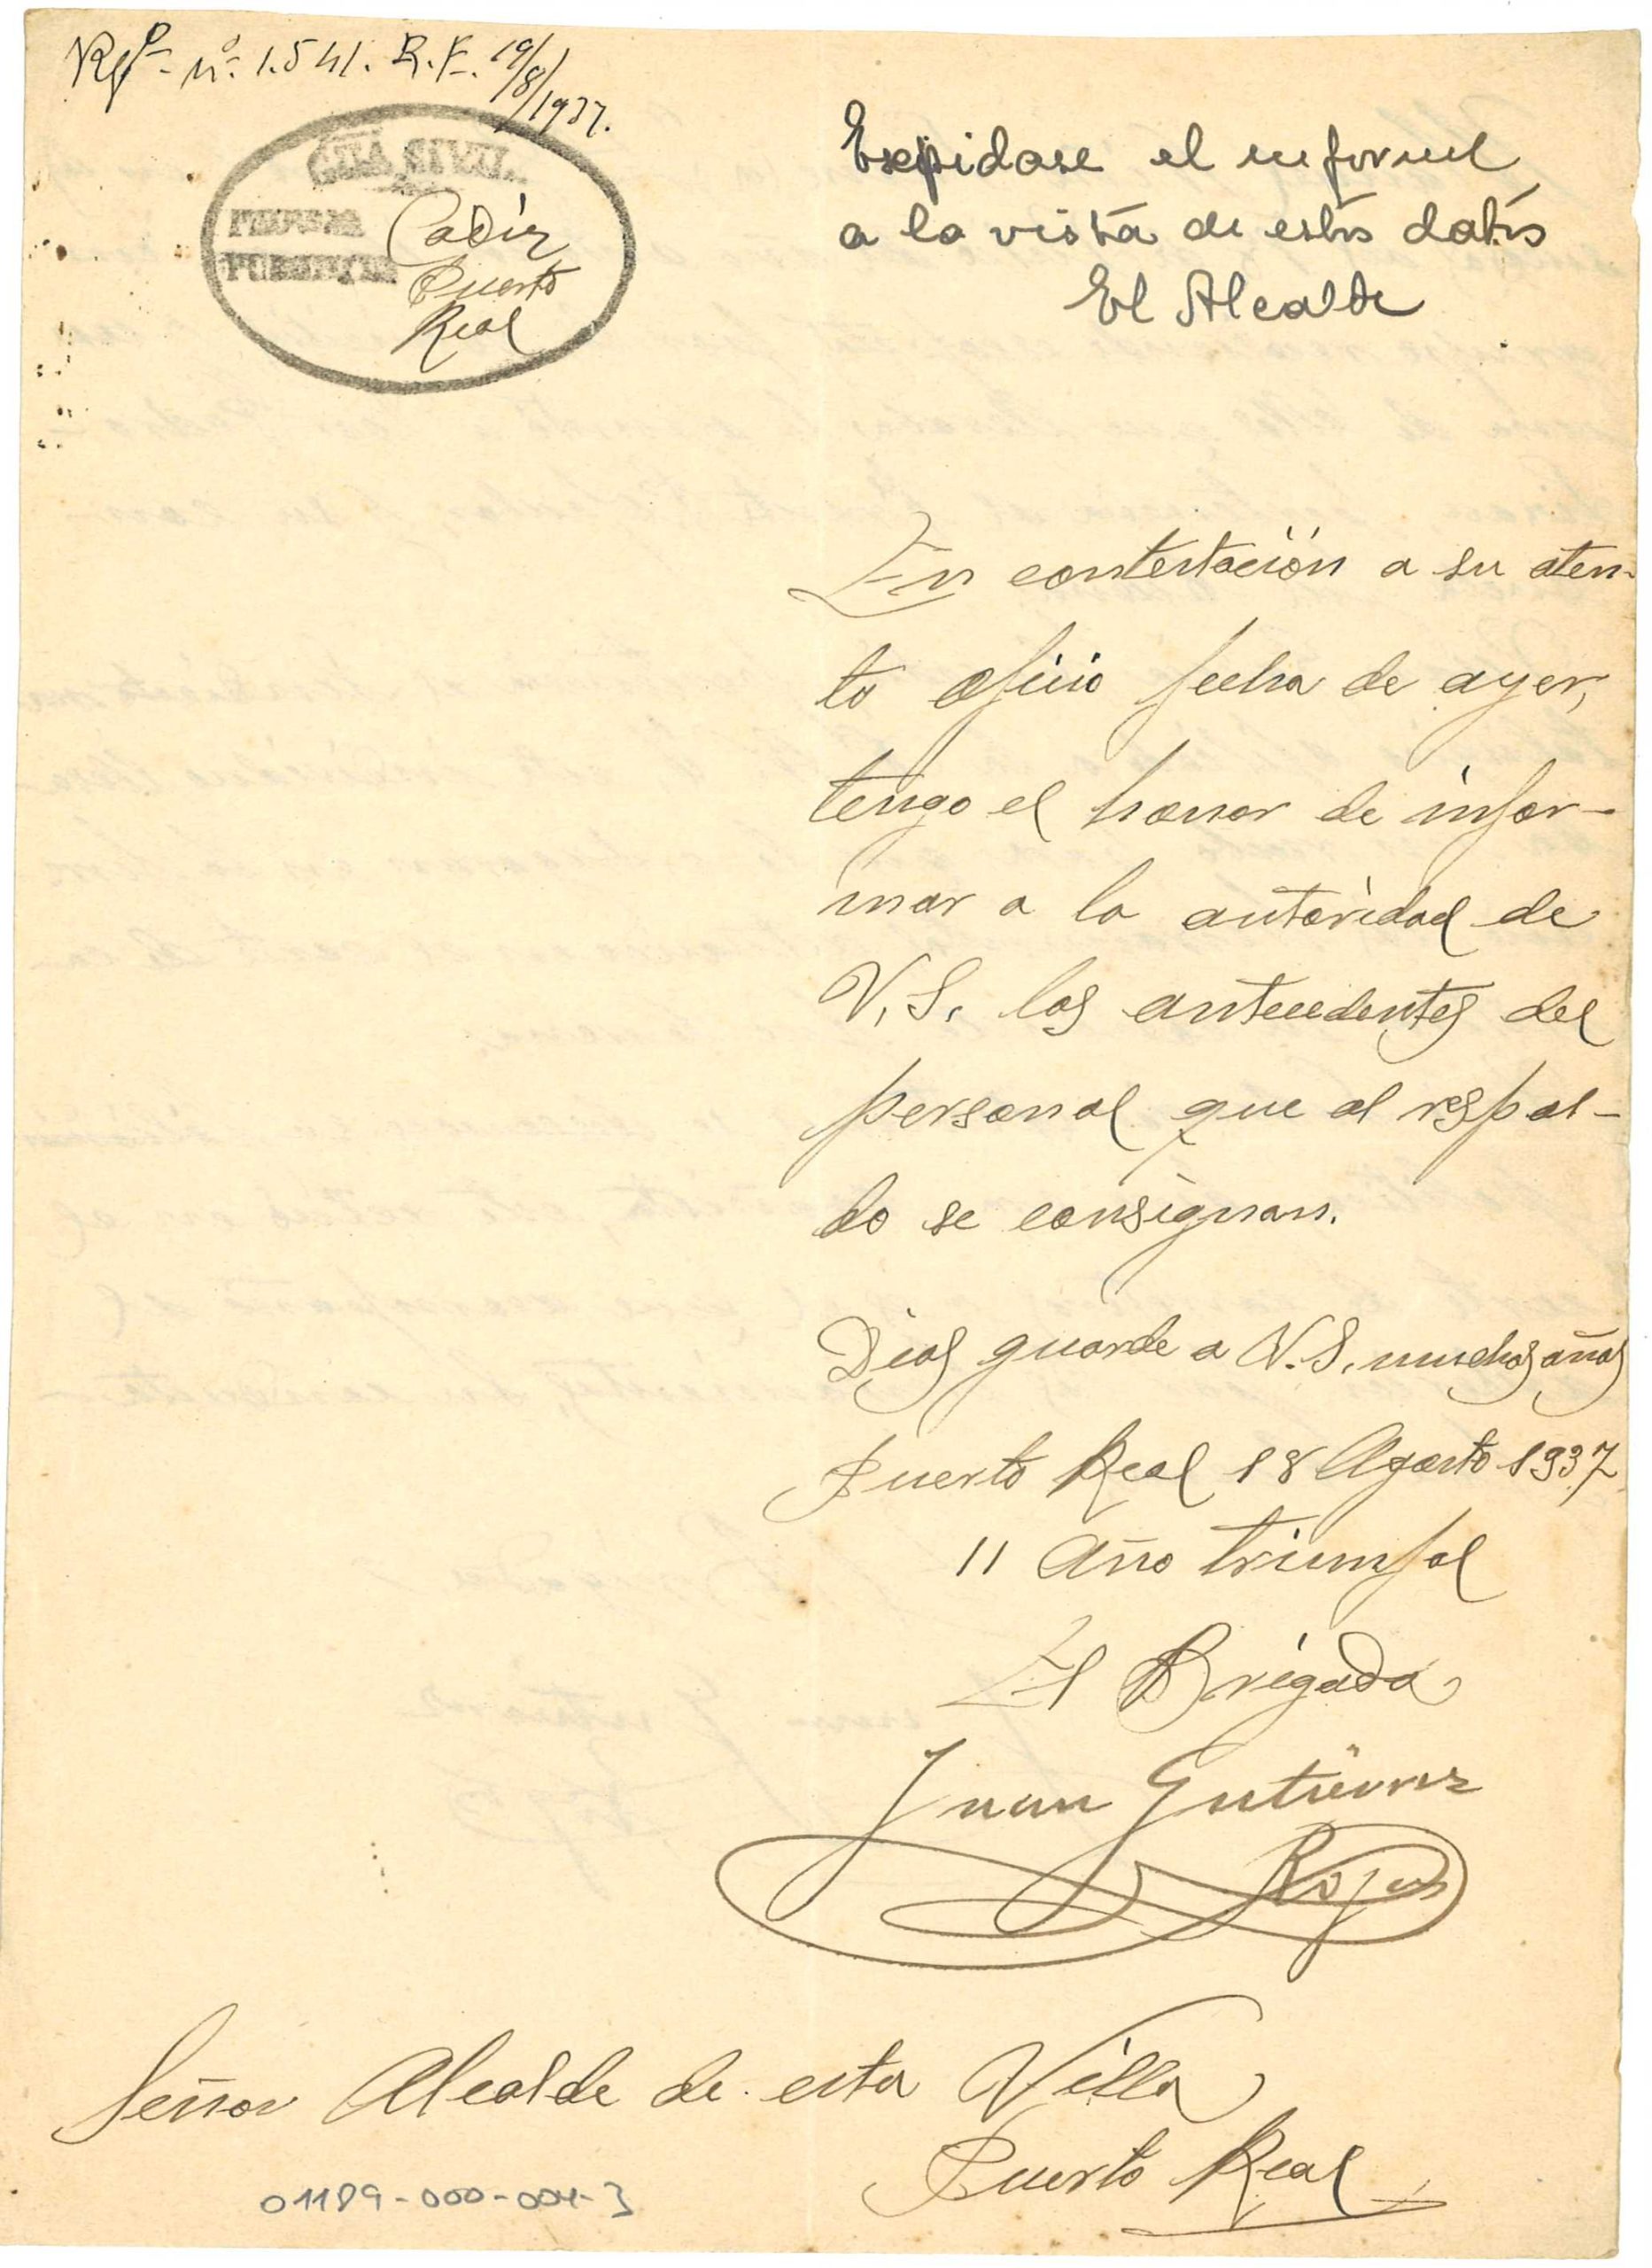 Rgº nº 1.541. R.F. 19/8/1937.
GUA. CIVIL.
Cadiz
Puerto
Real
Expidase el informe
a la vista de estos datos
El Alcalde
En contestación a su aten-
to oficio fecha de ayer,
tengo el honor de infor-
mar a la autoridad de
V.S. los antecedentes del
personal que al respal-
do se consignan.
Dios guarde a V.S. muchos años
Puerto Real 18 Agosto 1937
11 Año triunfal
El Brigada
Juan Gutierrez
Rojas
Señor Alcalde de esta Villa
Puerto Real
01189-000-004-3